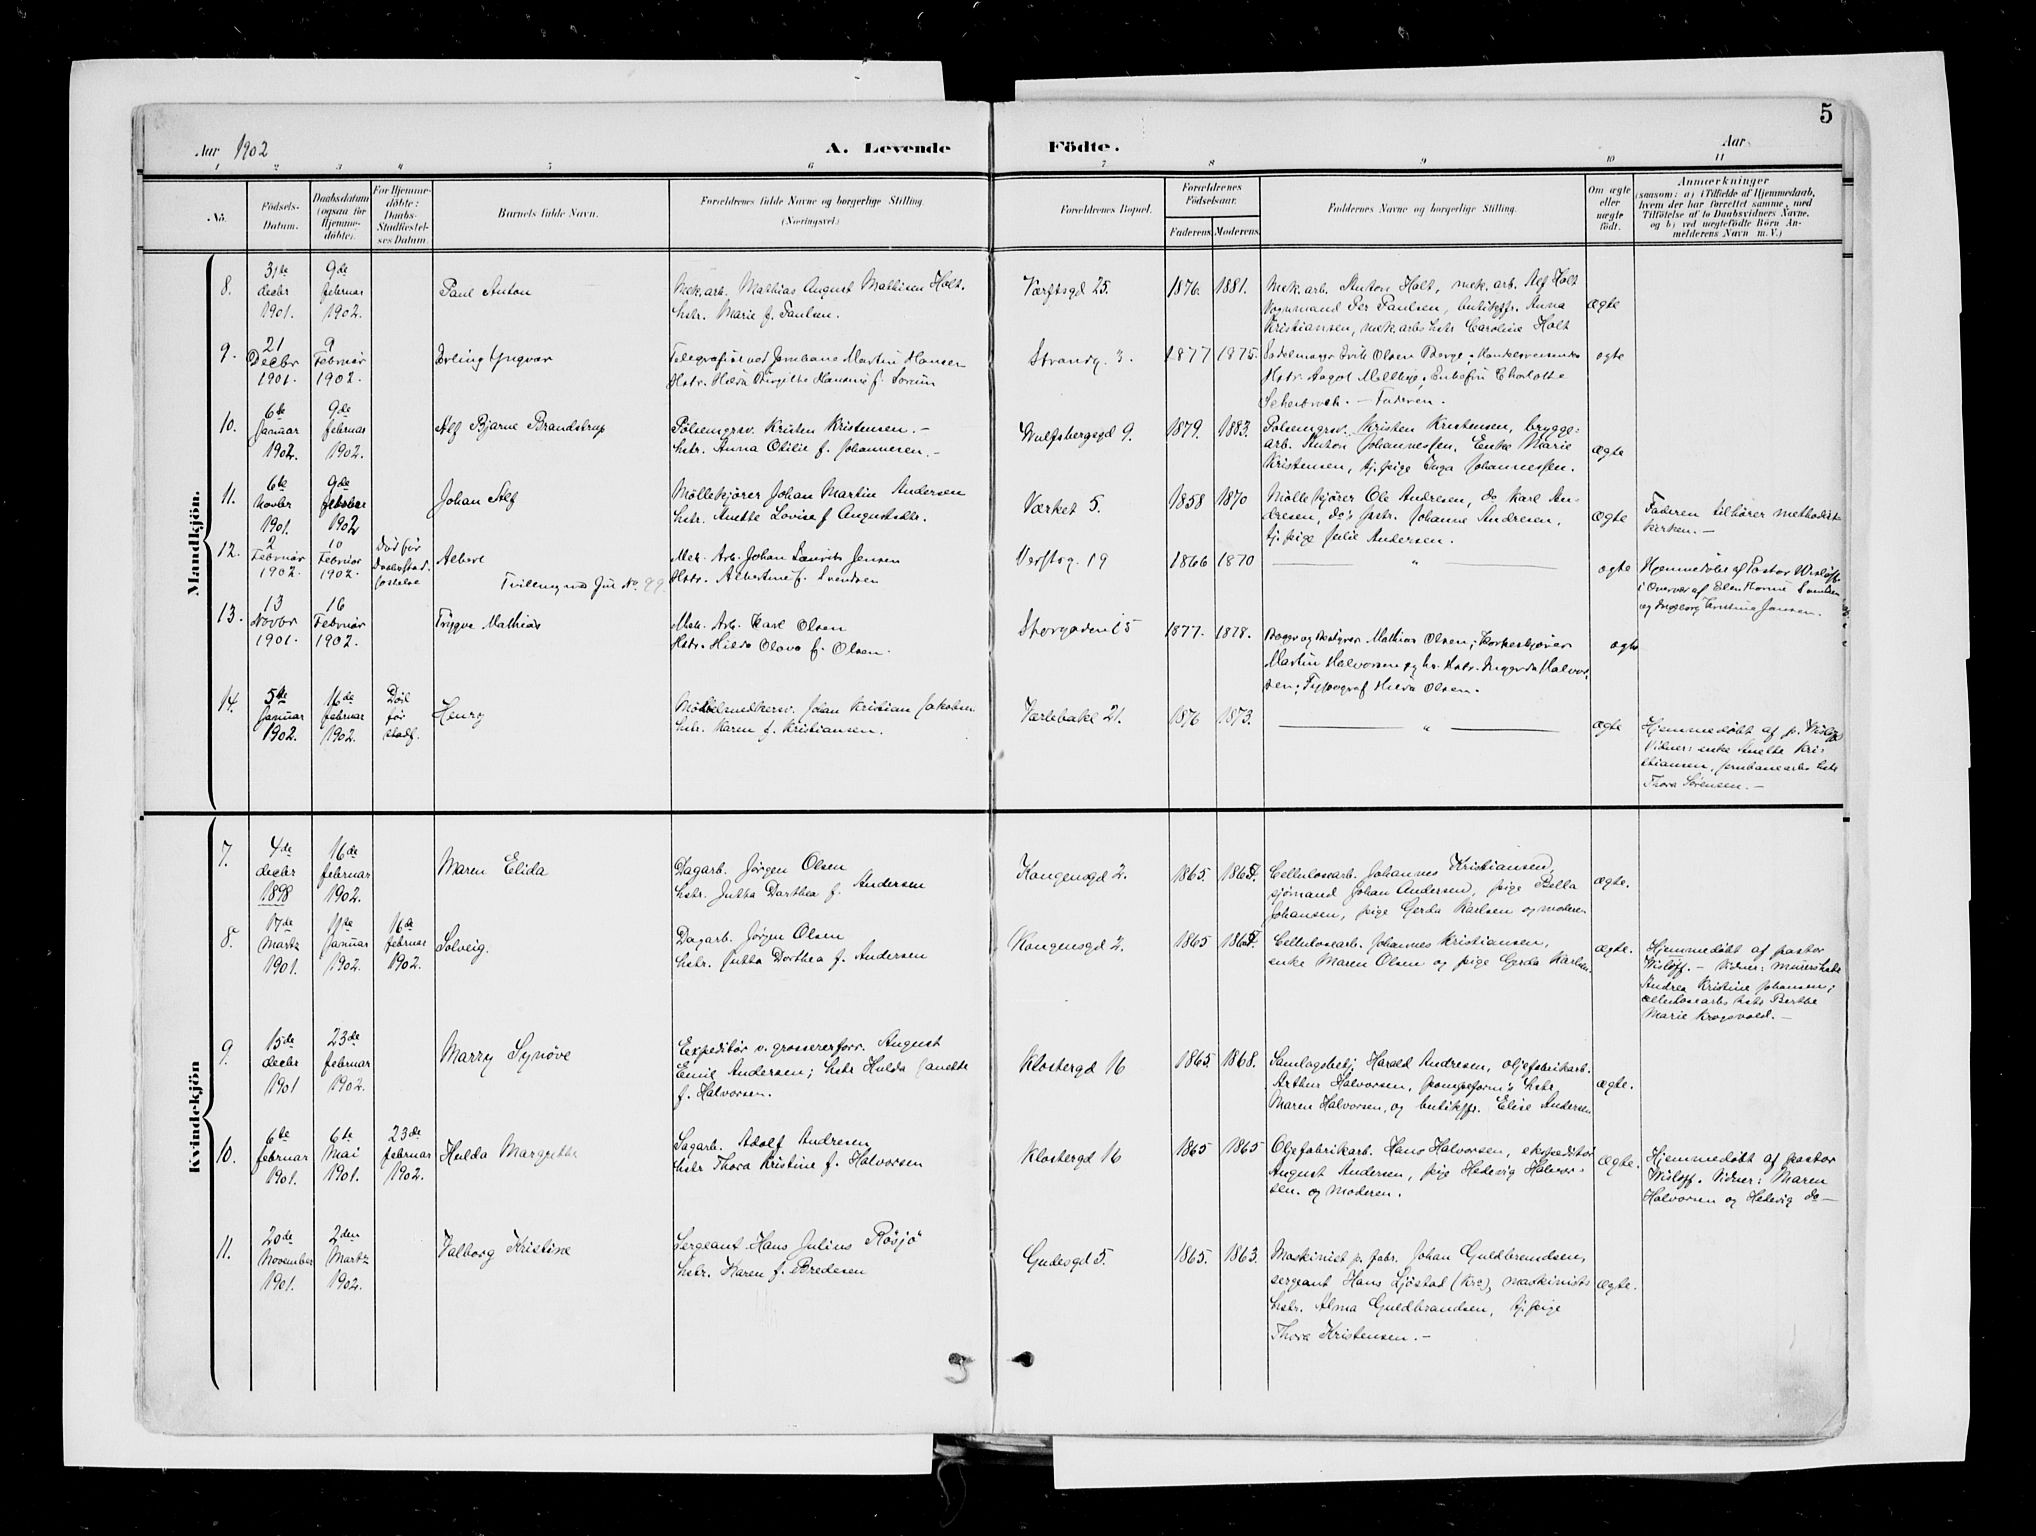 5
Aar 1902 A. Levende Födte. Aar
1 2 3 4 5 6 7 8 9 10 11
No.
Födsels-
Datum.
Daabsdatum
(ogsaa för
Hjemme-
döbte).
For Hjemme-
döbte:
Daabs-
Stadfæstel-
ses Datum.
Barnets fulde Navn.
Forældrenes fulde Navne og borgerlige Stilling.
(Næringsvei.)
Forældrenes Bopæl.
Forældrenes
Födselsaar.
Faderens Moderens
Faddernes Navne og borgerlige Stilling.
Om ægte
eller
uægte
födt.
Anmærkninger
(saasom: a) i Tilfælde af Hjemmedaab,
hvem der har forrettet samme, med
Tilföielse af to Daabsvidners Navne,
og b) ved uægtefödte Börn An-
melderens Navn m. V.)
Mandkjön.
8.
31te
decbr
1901.
9de
februar
1902.
Paul Anton
Mek. arb. Mathias August Mathisen Holt.
hstr. Marie f. Paulsen.
Værftsgd 25.
1876. 1881.
Mek. arb. Anton Holt, mek. arb. Alf Holt
Vognmand Per Paulsen, butikfr. Anna
Kristiansen, mek. arbs hstr Caroline Holt
ægte
9.
21
Decbr
1901.
9
Februar
1902.
Erling Yngvar
Telegrafist ved Jernbane Martin Hansen
Hstr. Hilda Birgitte Hansine f. Sorum
Strandg. 3.
1877 1875.
Sadelmager Erik Olsen Berge, Handelsreisendes
Hstr. Aagot
Faderen.
ægte
10.
6te
Januar
1902.
9de
februar
1902.
Alf Bjarne Brandstrup
Pölsemgrsv. Kristen Kristensen. -
hstr. Anna Otilie f. Johannesen. -
Wulfsbergsgd 9.
1879. 1883.
Pölsemgrsv. Kristen Kristensen, brygge-
arb. Anton Johannessen, Enke Marie
Kristensen, tj. pige Inga Johannessen.
ægte
11.
6te
Novbr
1901.
9de
februar
1902
Johan Alf
Möllekjörer Johan Martin Andersen
hstr. Anette Lovise f. Augustsdtr.
Værket 5.
1858 1870
Möllekjörer Ole Andresen, do Karl An-
dresen, do's hstr. Johanne Andresen,
tj. pige Julie Andersen.
ægte
Faderen tilhører methodist-
kirken. -
12.
2
Februar
1902.
10
Februar
1902.
Död för
Daabsstad-
fæstelse
Albert
Tvillingmed
Mek. Arb. Johan Laurits Jensen
Hstr. Albertine f. Svendsen
Verftsg. 19
1866 1870
"
ægte
Hjemmedöbt af Pastor Wislöff
i Overvær af Elen Svendsen
og Ingeborg Kristine Jansen.
13.
13
Novbr
1901.
16
Februar
1902.
Trygve Mathias
Mek. Arb. Karl Olsen
Hstr. Hilda Olava f. Olsen.
Storgaden 15
1877. 1878.
Mathias Olsen;
Martin Halvorsen og hs. Hstr. Halvor-
sen; Typograf Hilda Olsen.
ægte
14.
5te
Januar
1902.
16de
februar
1902.
Död
för
stadf.
Henry
Möbelsnedkersv. Johan Kristian Jakobsen
hstr. Karen f. Kristiansen.
Værlebakke 21.
1876 1873.
"
ægte
Hjemmedöbt af p. Wislöff
Vidner: enke Anette Kri-
stiansen, jernbanearbs hstr
Thora Sörensen. -
Kvindekjön
7.
4de
decbr
1898
16de
februar
1902.
Maren Elida
Dagarb. Jörgen Olsen
hstr. Jutta Dorthea f. Andersen
Kongensgd 2.
1865.
Cellulosearb. Johannes Kristiansen,
sjömand Johan Andersen, pige Bella
Johansen, pige Gerda Karlsen og moderen
ægte.
8.
17de
Martz
1901.
11te
Januar
1902.
16de
februar
1902.
Solveig.
Dagarb. Jörgen Olsen
hstr. Jutta Dorthea f. Andersen
Kongensgd 2.
1865
Cellulosearb. Johannes Kristiansen,
enke Maren Olsen og pige Gerda Karlsen.
ægte.
Hjemmedöbt af pastor
Wislöff. - Vidner: murers hstr
Andrea Kristine Johansen;
cellulosearbs hstr Berthe
Marie Krogsvold. -
9.
15de
decbr
1901
23de
februar
1902.
Marry Synöve
Expeditör v. grossererforr. August
Emil Andersen; hstr Hulda Janette
f. Halvorsen.
Klostergd 16
1865. 1868.
Samlagsbetj. Harald Andresen, oljefabrikarb.
Arthur Halvorsen, pompeform's hstr.
Maren Halvorsen, og butikfr. Elise Andersen
ægte.
10.
6te
februar
1901.
6te
Mai
1901.
23de
februar
1902.
Hulda Margrethe
Sagarb. Adolf Andresen
hstr Thora Kristine f. Halvorsen
Klostergd 16
1865 1865
Oljefabrikarb. Hans Halvorsen, ekspeditör
August Andersen, pige Hedevig Halvor-
sen. og moderen.
ægte.
Hjemmedöbt af pastor
Wislöff. Vidner: Maren
Halvorsen og Hedevig do -
11.
20de
November
1901.
2den
Martz
1902.
Valborg Kristine
Sergeant Hans Julius Rösjö
hstr. Karen f. Bredesen
Gudesgd 5.
1865. 1863.
Maskinist p. fabr. Johan Guldbrandsen,
sergeant Hans Sjöstad (Kra), maskinists
hstr. Alma Guldbrandsen, tj. pige
Thora Kristensen. -
ægte.